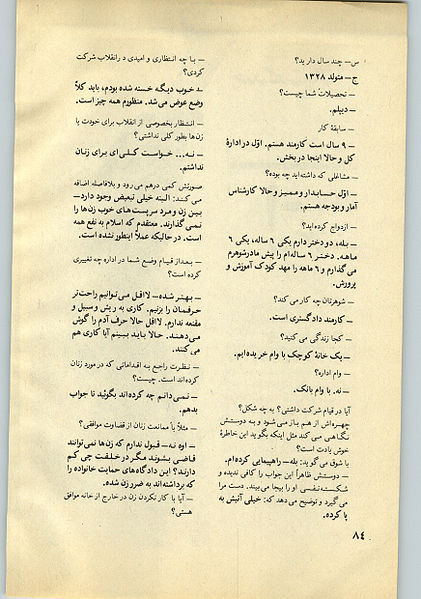 س– چند سال دارید؟
ج– متولد ۱۳۲۸
– تحصیلات شما چیست؟
– دیپلم.
– سابقهٔ کار
– ۹ سال است کارمند هستم. اوّل در ادارهٔ
کل و حالا اینجا در بخش.
– مشاغلی که داشته‌اید چه بوده؟
– اوّل حسابدار و ممیز و حالا کارشناس
آمار و بودجه هستم.
– ازدواج کرده‌اید؟
– بله، دو دختر دارم یکی ۶ ساله، یکی ۶
ماهه. دختر ۶ ساله‌ام را پیش مادرشوهرم
می گذارم و ۶ ماهه را مهد کودک آموزش و
پرورش.
– شوهرتان چه کار می کند؟
– کارمند دادگستری است.
– کجا زندگی می کنید؟
– یک خانهٔ کوچک با وام خریده‌ایم.
– وام اداره؟
– نه. با وام بانک.
آیا در قیام شرکت داشتی؟ به چه شکل؟
چهره‌اش از هم باز می شود و به دوستش
نگاهی می کند مثل اینکه بگوید این خاطرهٔ
خوش یادت است؟
با شوق می گوید: بله– راهپیمایی کرده‌ام.
– دوستش ظاهراً این جواب را کافی ندیده و
شکسته نفسی او را بیجا می بیند. دست مرا
می گیرد و توضیح می دهد که: خیلی آتیش به
پا کرده.
– با چه انتظاری و امیدی در انقلاب شرکت
کردی؟
– خوب دیگه خسته شده بودم، باید کلاً
وضع عوض می شد. منظورم همه چیز است.
– انتظار بخصوصی از انقلاب برای خودت یا
زن‌ها بطور کلی نداشتی؟
– نه... خواست کلی ای برای زنان
نداشتم.
صورتش کمی درهم می رود و بلافاصله اضافه
می کند: البته خیلی تبعیض وجود دارد–
بین زن و مرد سرپست های خوب زن‌ها را
نمی گذارند. معتقدم که اسلام به نفع همه
است. در حالیکه عملاً اینطور نشده است.
– بعد از قیام وضع شما در اداره چه تغییری
کرده است؟
– بهتر شده– لااقل می توانیم راحت‌تر
حرفمان را بزنیم. کاری به ریش و سبیل و
مقنعه ندارم. لااقل حالا حرف آدم را گوش
می دهند. حالا باید ببینم آیا کاری هم
می کنند.
– نظرت راجع به اقداماتی که در مورد زنان
کرده‌اند است. چیست؟
– نمی دانم چه کرده‌اند بگوئید تا جواب
بدهم.
– مثلاً با ممانعت زنان از قضاوت موافقی؟
– اوه نه– قبول ندارم که زن‌ها نمی توانند
قاضی بشوند مگر در خلقت چی کم
دارند؟ این دادگاه‌های حمایت خانواده را
که برداشته‌اند به ضرر زن شده.
– آیا با کار نکردن زن در خارج از خانه موافق
هستی؟
۸٤